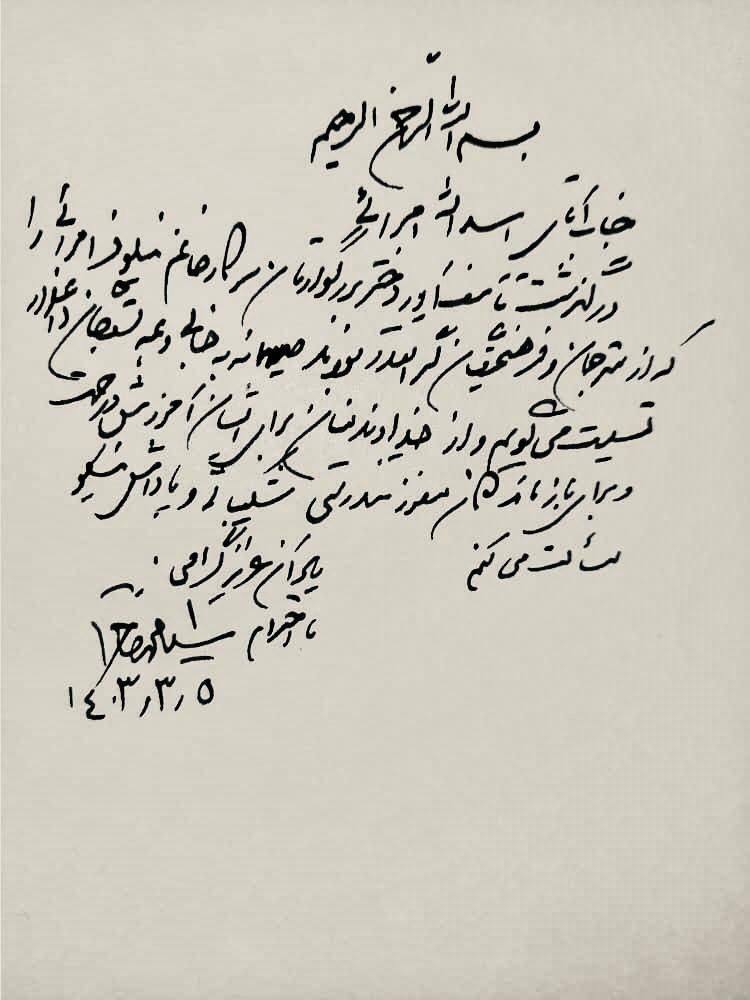 بسم الله الرحمن الرحیم
جناب آقای اسدالله امرائی
درگذشت تأسف‌آور دختر بزرگوارتان سرکار خانم نیلوفر امرائی را
که از مترجمان و فرهنگیان گرانقدر بودند صمیمانه به جنابعالی و همه
تسلیت می‌گویم و از خداوند منان برای ایشان آمرزش و رحمت
و برای بازماندگان معزز تندرستی شکیبائی و پاداش نیکو
مسألت می‌کنم
یاد آن عزیز گرامی
با احترام سید محمد خاتمی
۱۴۰۳٫۳٫۵